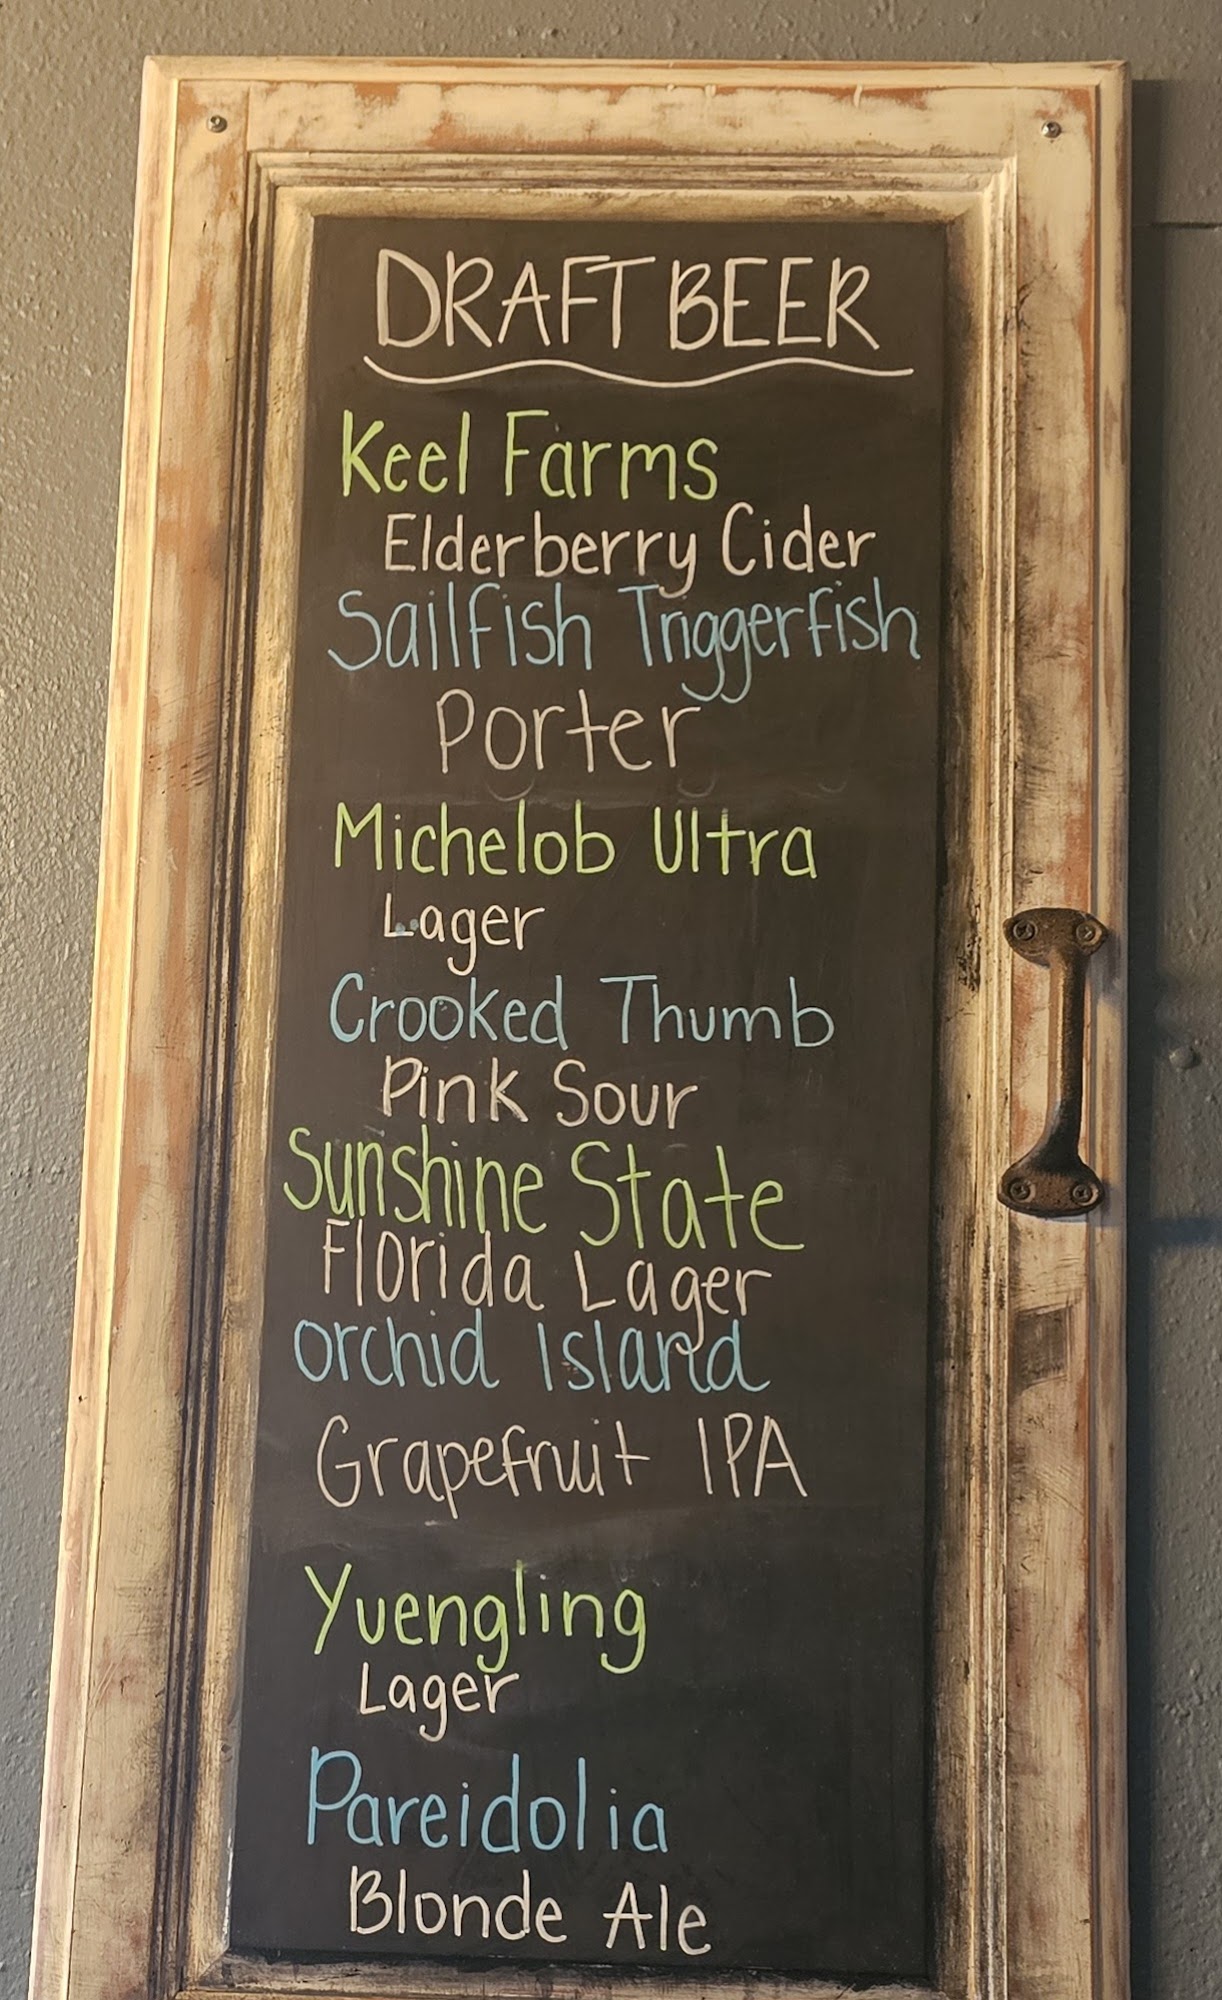 DRAFT BEER
Keel Farms
Elderberry Cider
Sailfish Triggerfish
Porter
Michelob Ultra
Lager
Crooked Thumb
Pink Sour
Sunshine State
Florida Lager
Orchid Island
Grapefruit IPA
Yuengling
Lager
Pareidolia
Blonde Ale